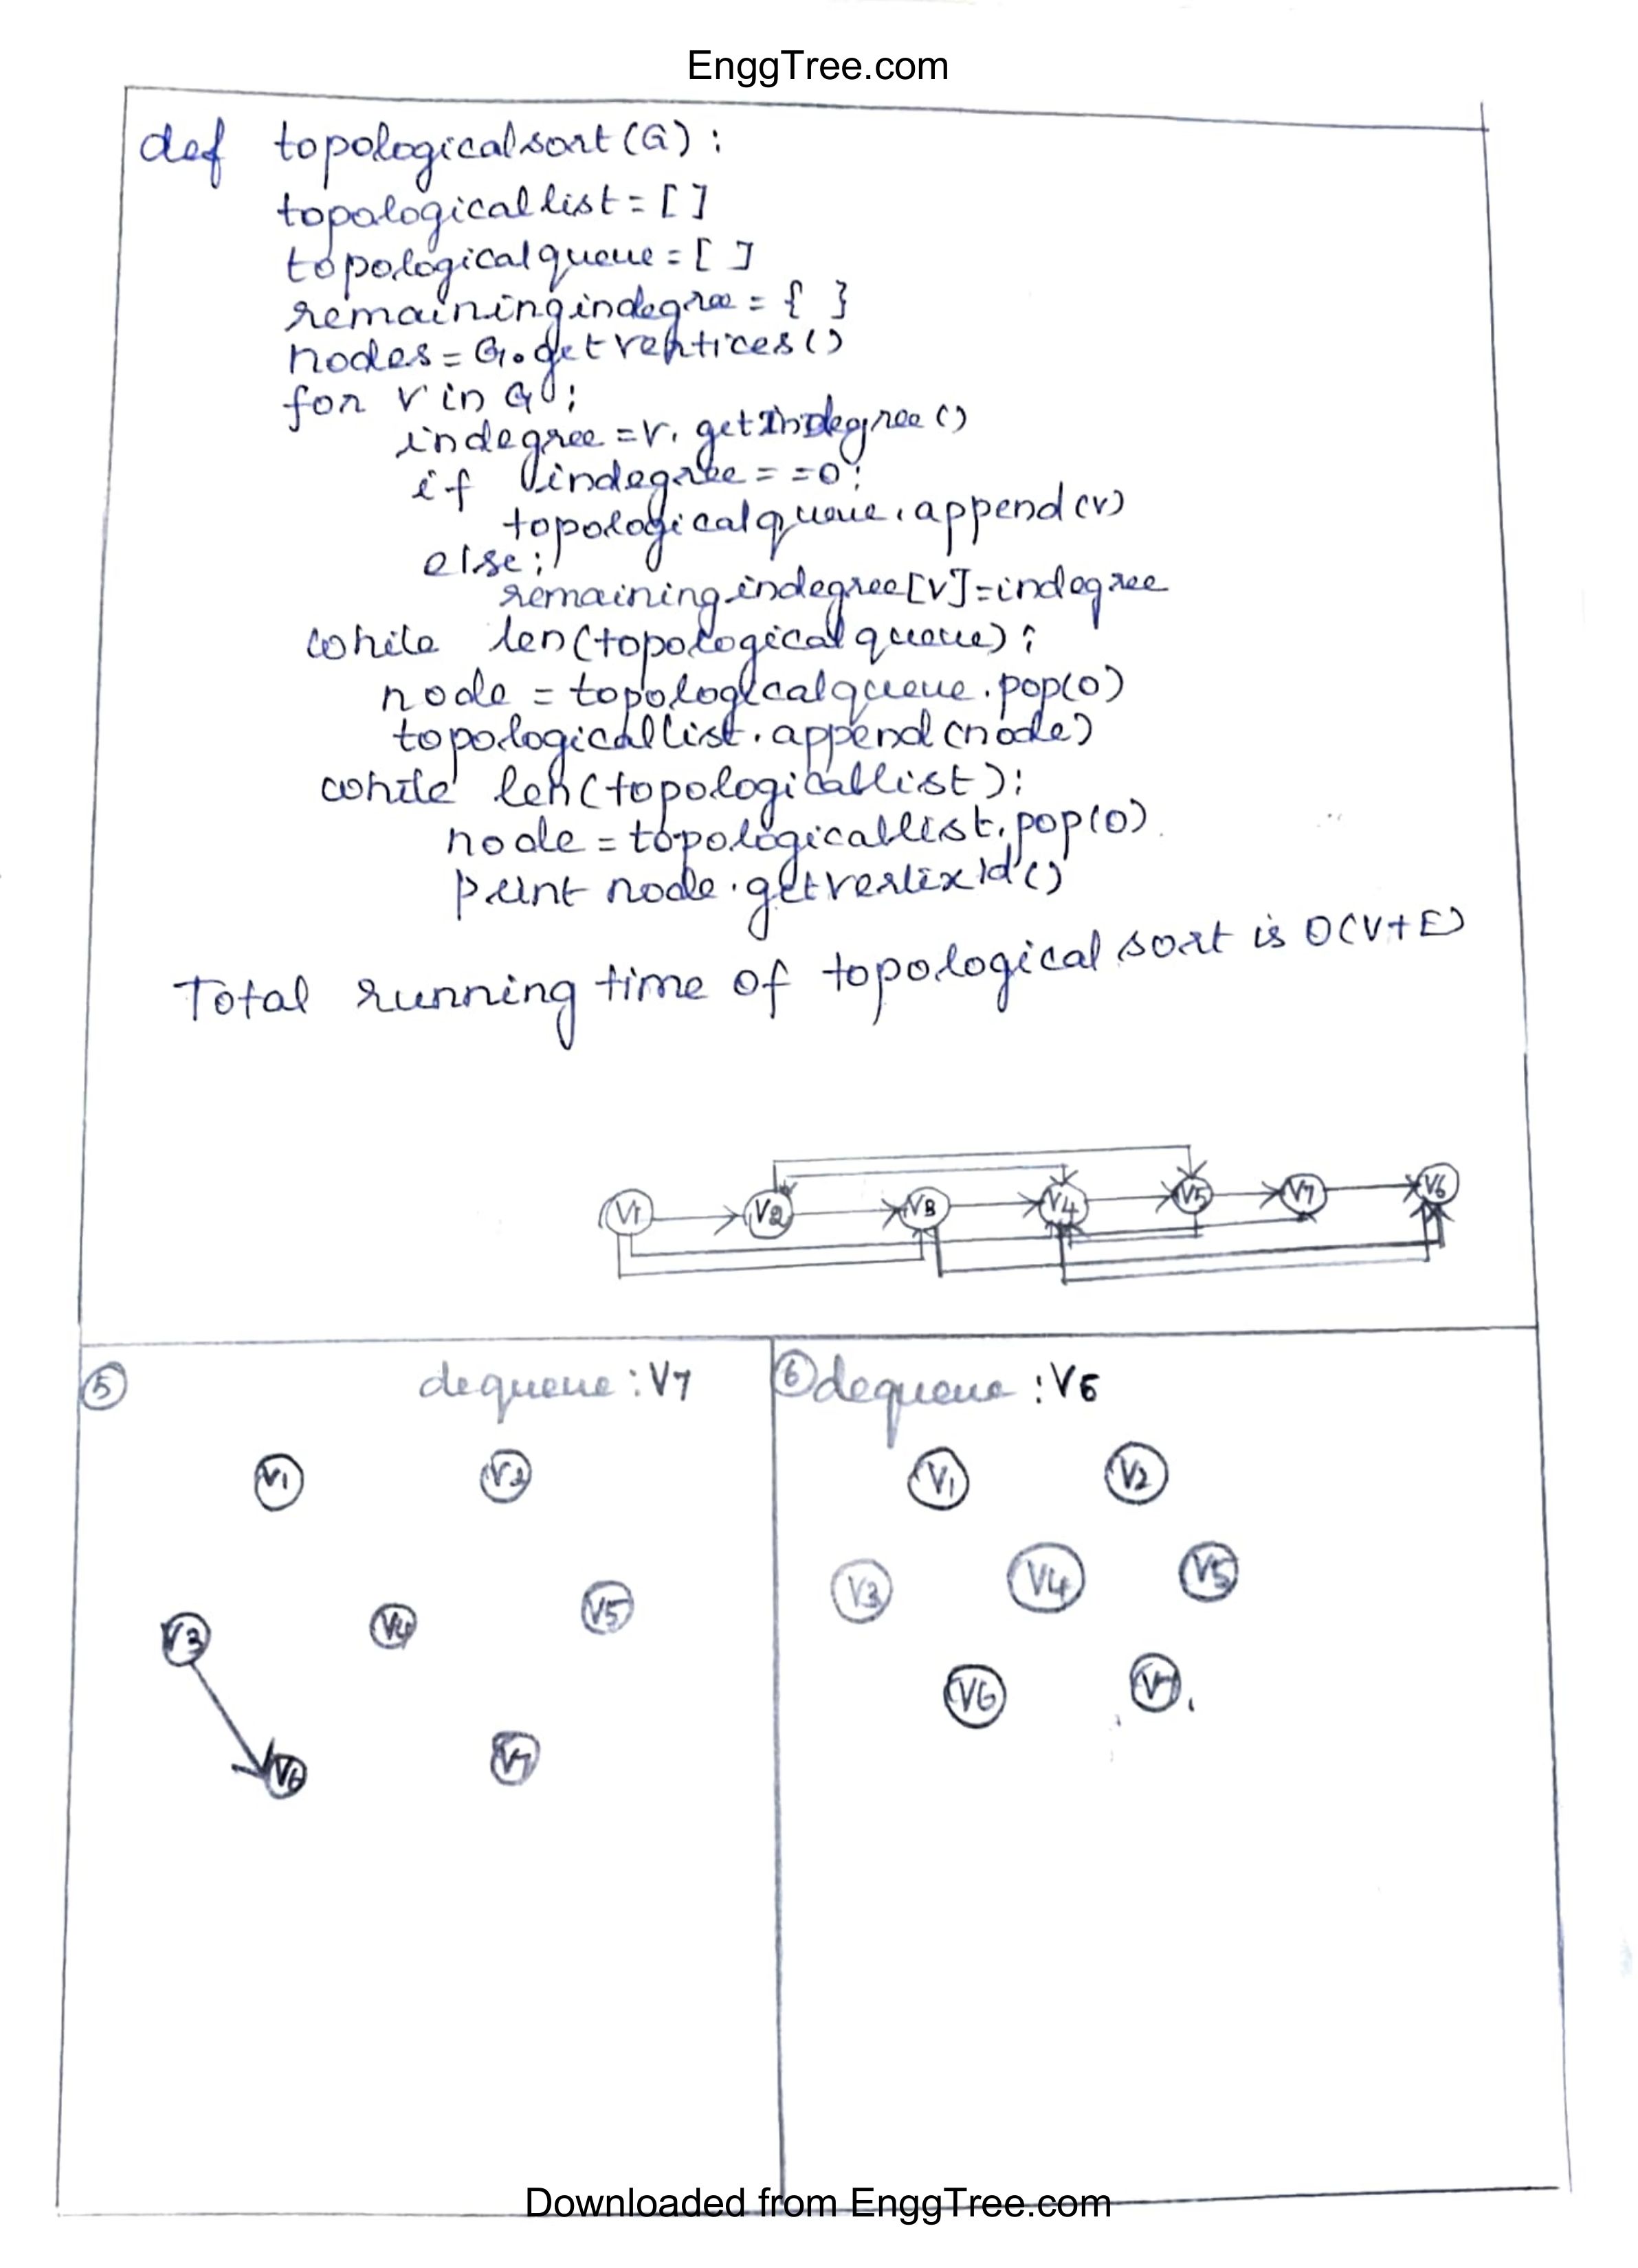 EnggTree.com
def topologicalsort(G):
topologicallist=[]
topologicalqueue=[ ]
remainingindegree={ }
nodes=G.getvertices()
for v in G:
indegree=v.getIndegree()
if indegree==0:
topologicalqueue.append(v)
else:
remainingindegree[v]=indegree
while len(topologicalqueue):
node=topologicalqueue.pop(0)
topologicallist.append(node)
while len(topologicallist):
node=topologicallist.pop(0)
print node.getvertexId()
Total running time of topological sort is O(V+E)
V1 V2 V3 V4 V5 V7 V6
5 dequeue:V7
6 dequeue:V6
V1 V2
V3 V4 V5
V6 V7
V1 V2
V3 V4 V5
V6 V7
Downloaded from EnggTree.com